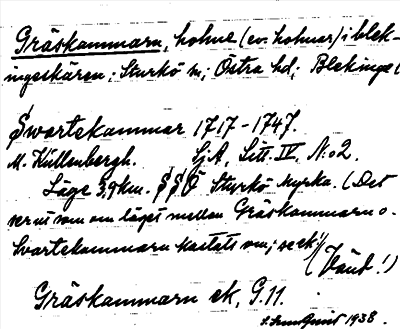 Gräskammarn, holme (ev. holmar) i blek-
ingeskären; Sturkö sn; Östra hd; Blekinge l
Swartekammar 1717-1747.
M. Küllenbergh. SjA, Litt. IV, No 2.
Läge 3,9 km. SSÖ Sturkö kyrka. (Det
ser ut som om läget mellan Gräskammarn o.
Svartekammarn kastats om; se ek!)
(Vänd!)
Gräskammarn ek. G.11.
1938.